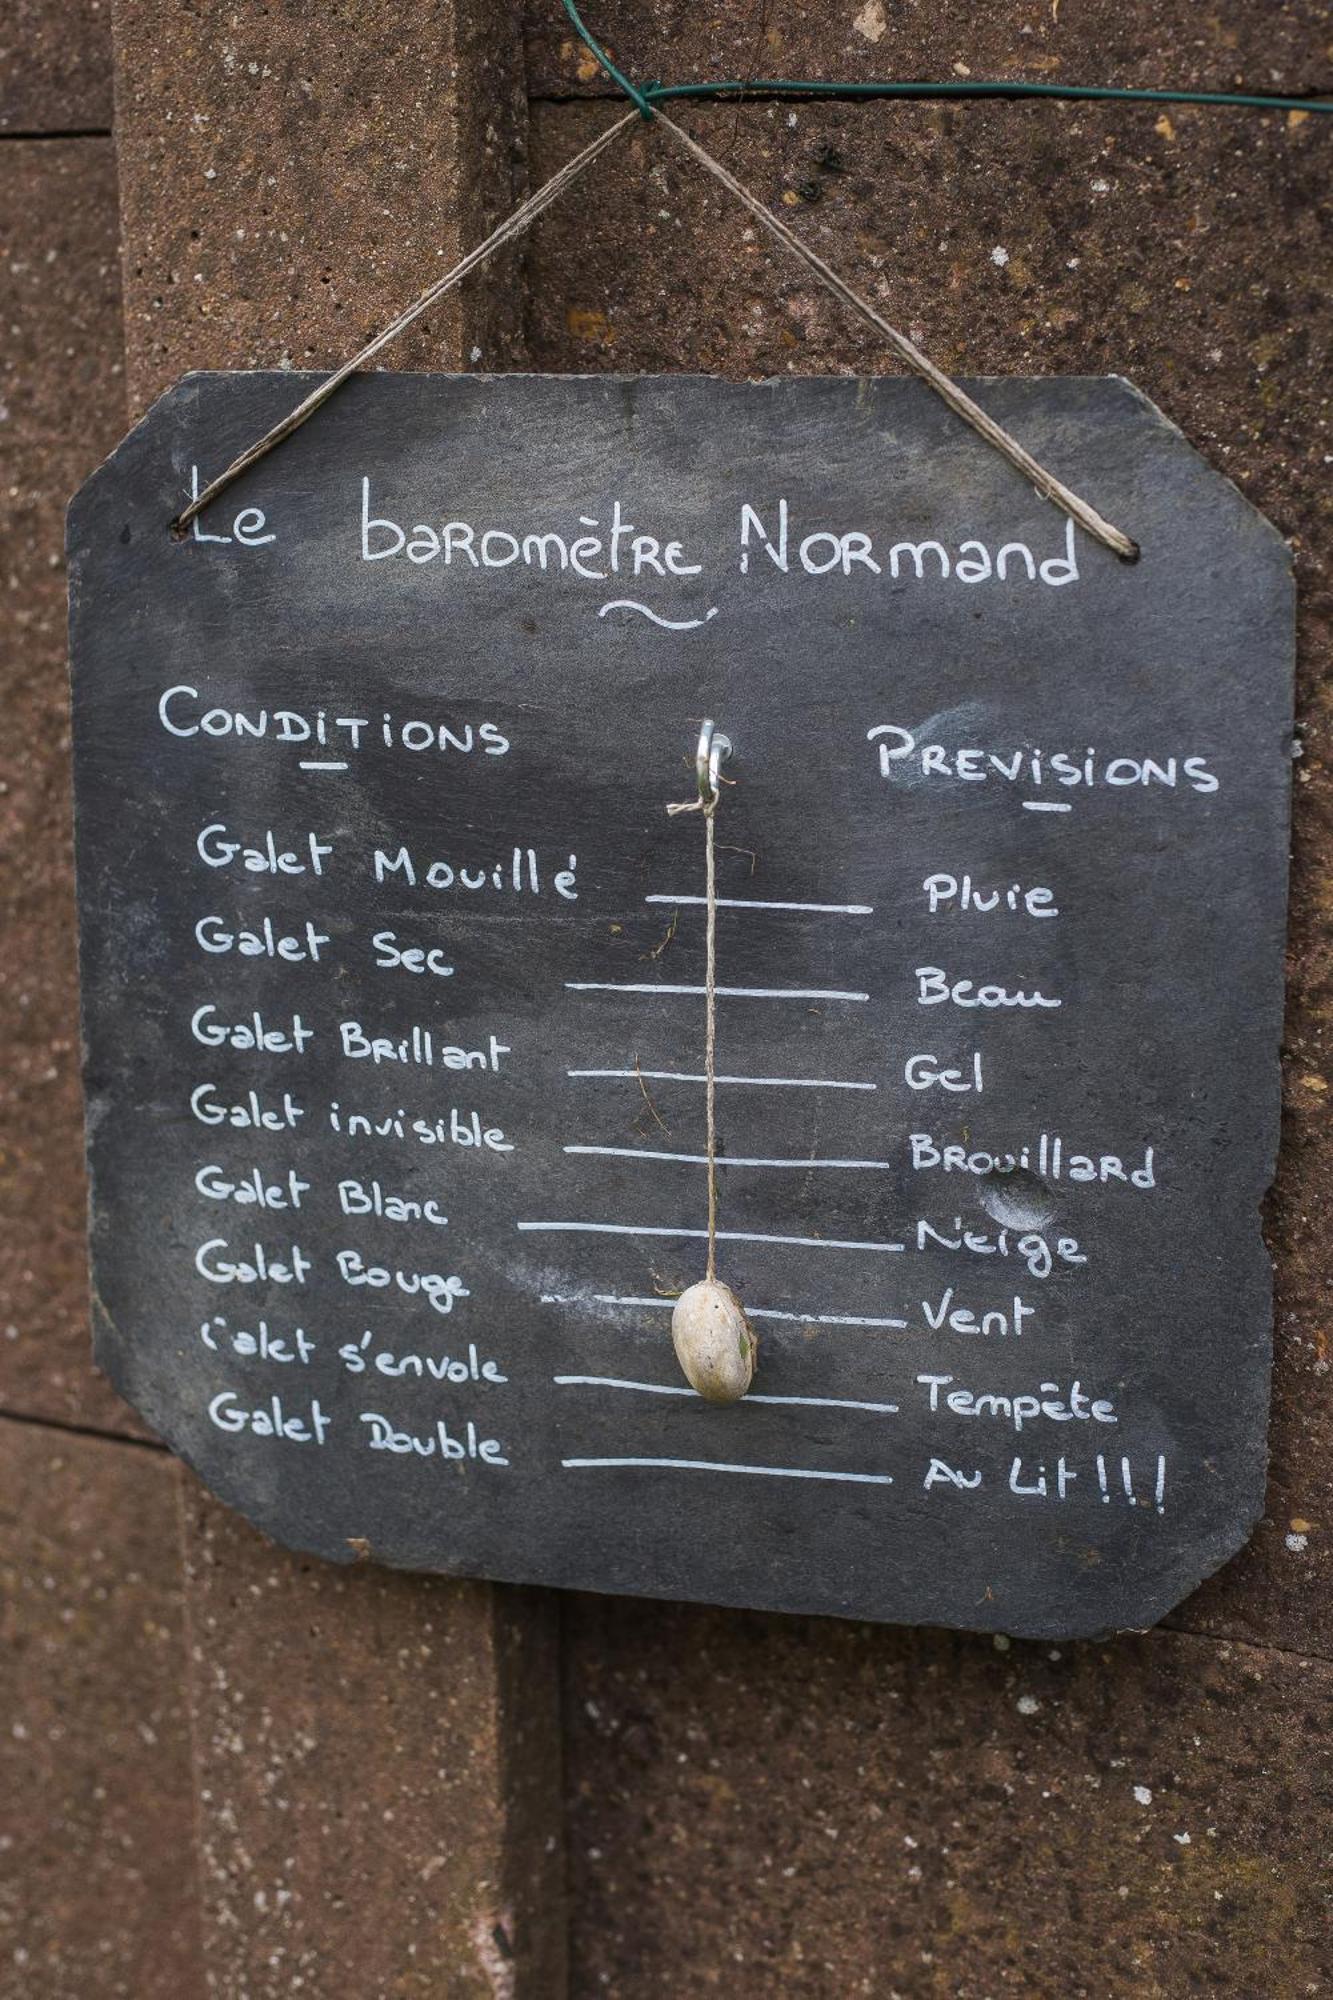 Le baromètre Normand
CONDITIONS PREVISIONS
Galet Mouillé Pluie
Galet Sec Beau
Galet Brillant Gel
Galet invisible Brouillard
Galet Blanc Neige
Galet Bouge Vent
Galet s'envole Tempête
Galet Double Au Lit !!!